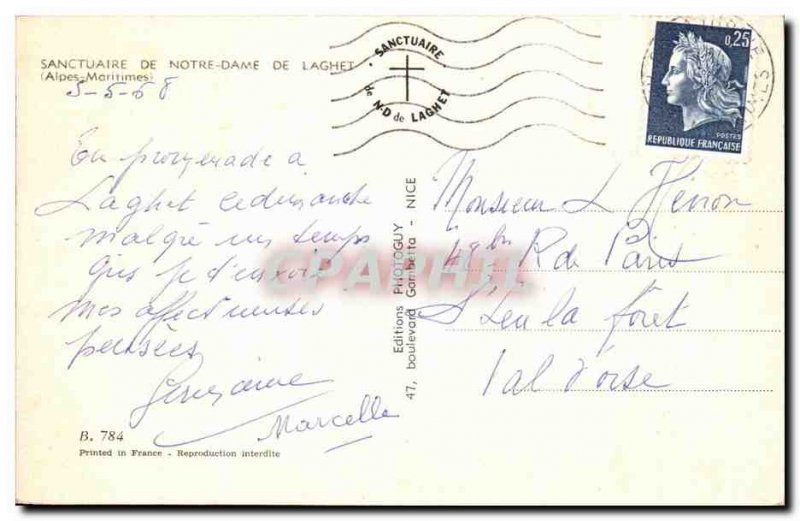 SANCTUAIRE DE NOTRE-DAME DE LAGHET
(Alpes-Maritimes)
5-5-68
En promenade à
Laghet ce dimanche
malgré un temps
gris je t'envoie
mes affectueuses
pensées
Germaine
Marcelle
B. 784
Printed in France - Reproduction interdite
Editions PHOTOGUY
47, boulevard Gambetta - NICE
SANCTUAIRE
de N-D de LAGHET
0,25
POSTES
REPUBLIQUE FRANÇAISE
Monsieur L
R de Paris
St Leu la forêt
Val d'oise
CPAPHIL